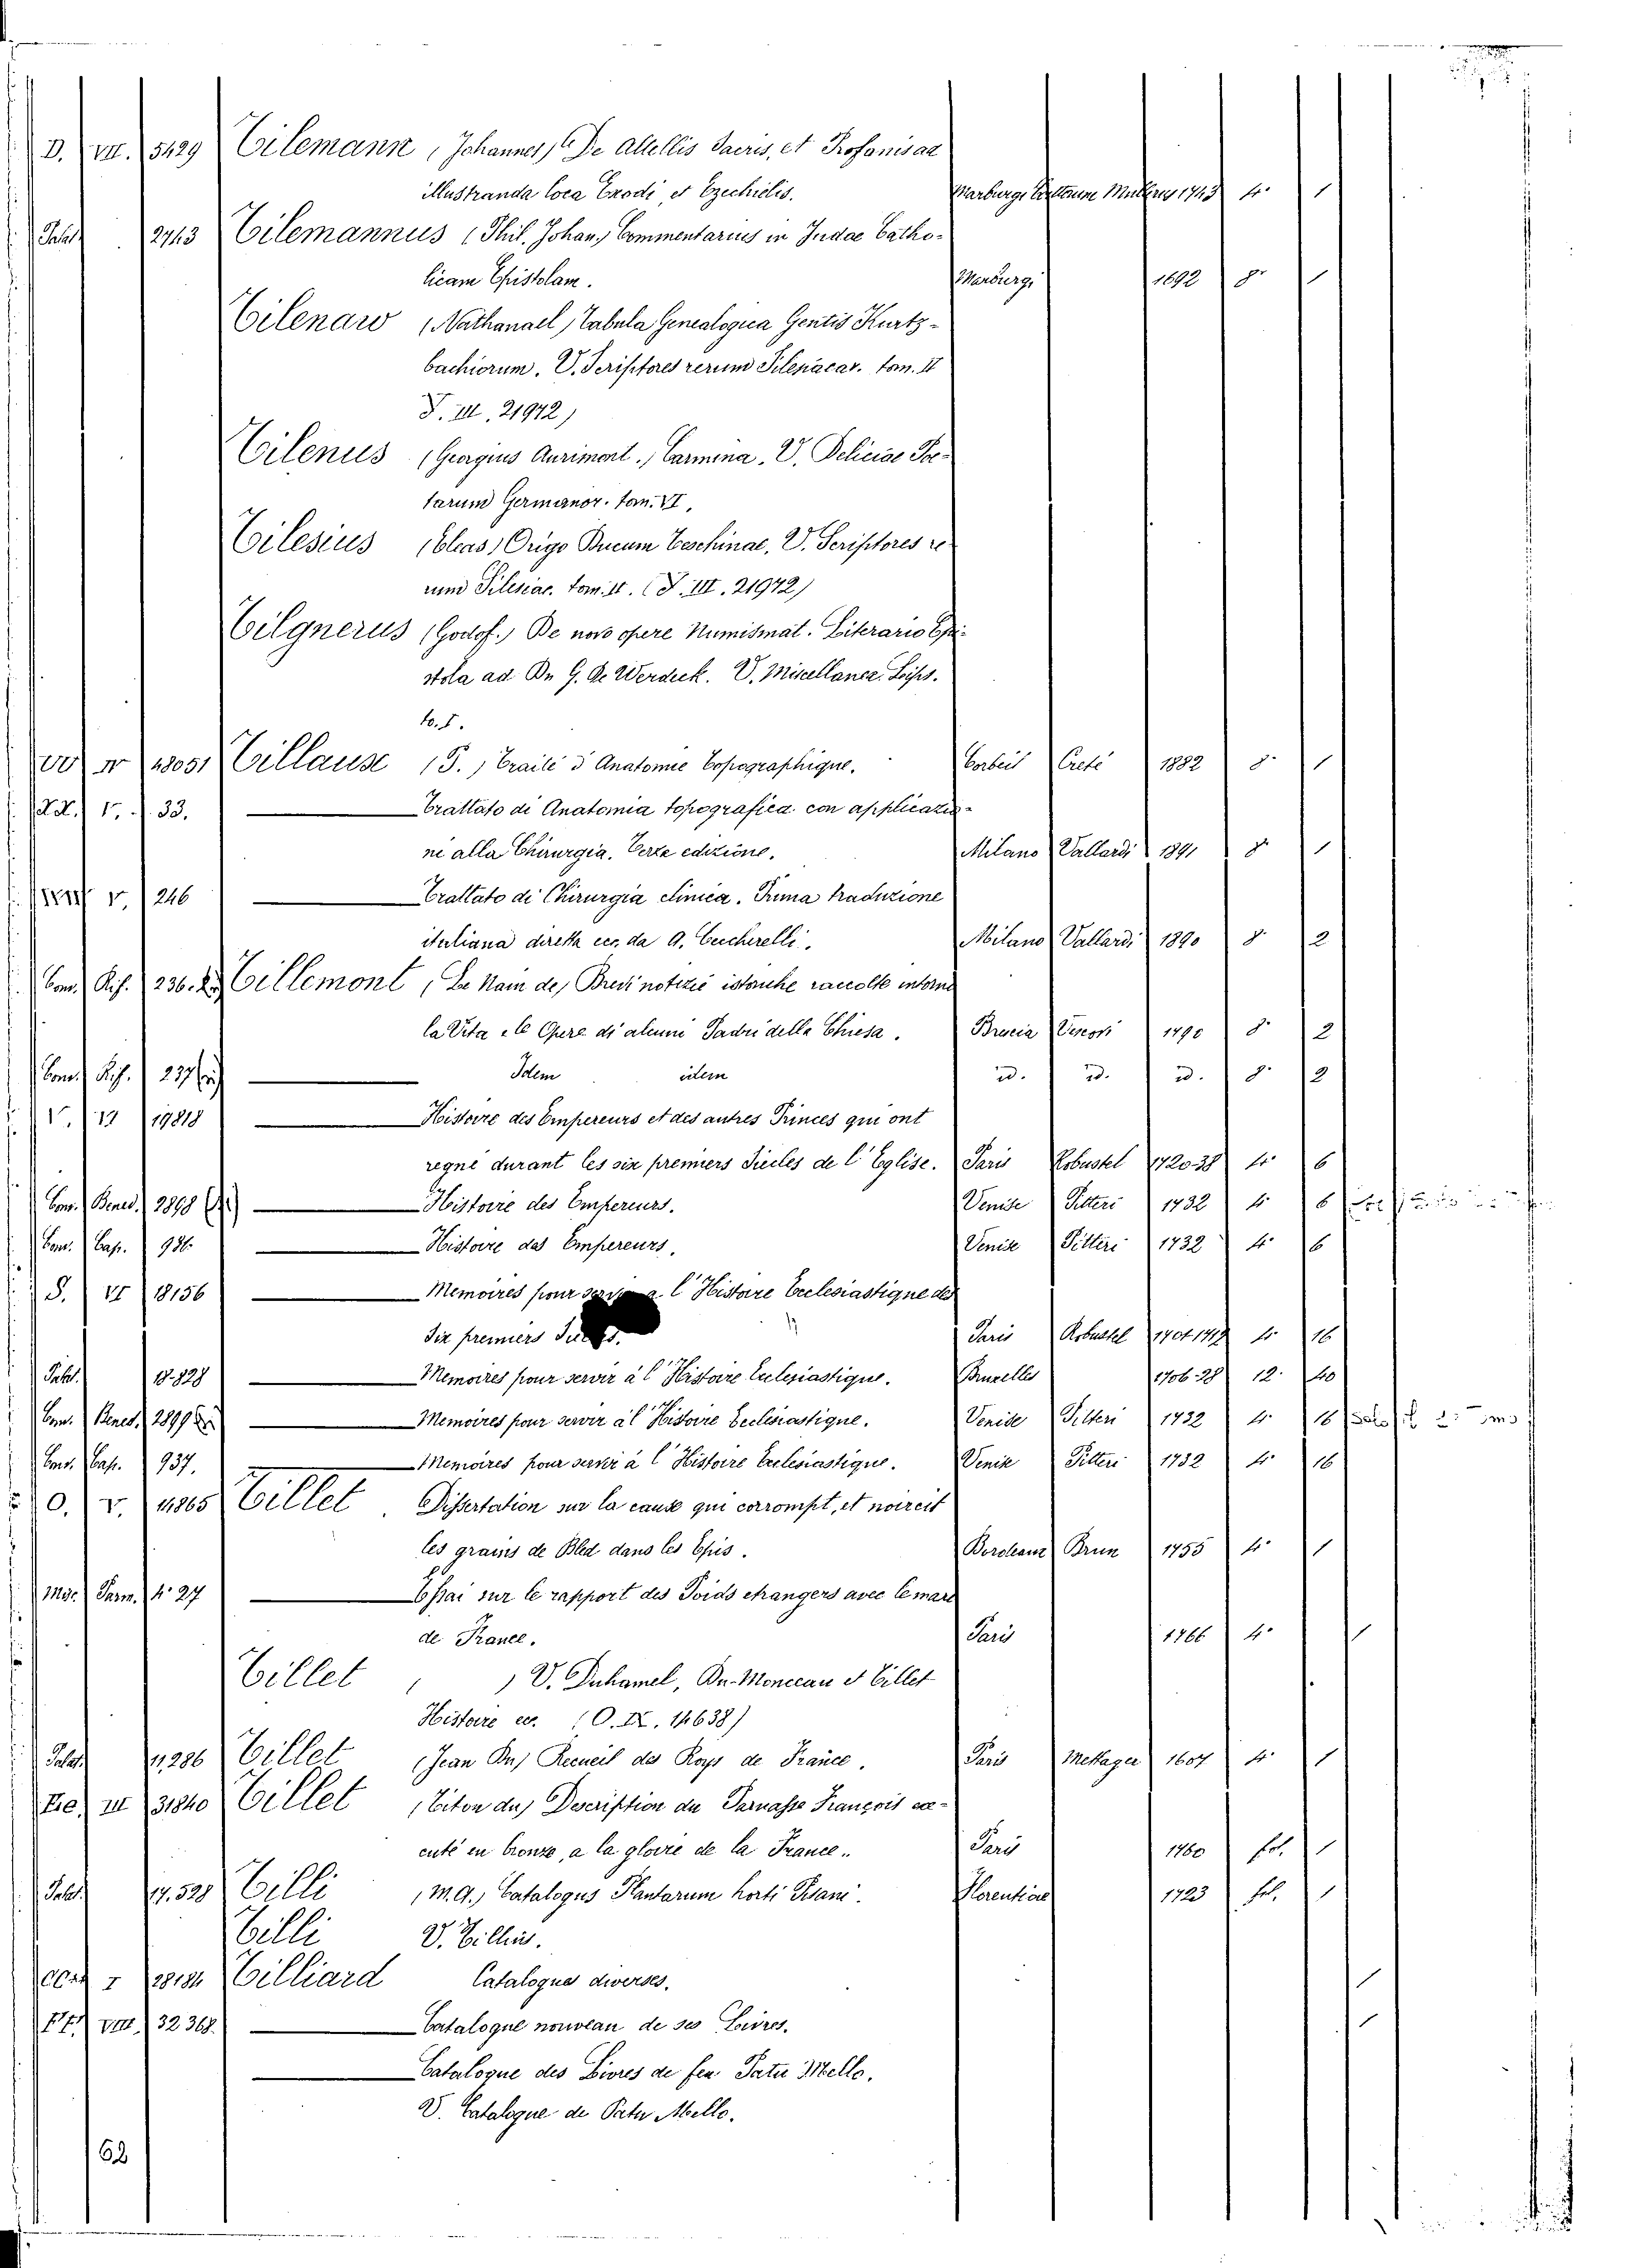 D. VII. 5429 Tilemann (Johannes) De Altellis Sacris, et Profanis ac
illustranda loca Exodi et Ezechielis. Marburgi 1743 4° 1
Palat. 2743 Tilemannus (Phil. Johan.) Commentarius in Judae Catho-
licam Epistolam. Marburgi 1692 8° 1
Tilenaw (Nathanael) Tabula Genealogica Gentis Kurtz-
bachiorum. V. Scriptores rerum Silesiacar. tom. II
F. III. 21972)
Tilenus (Georgius Aurimont.) Carmina. V. Deliciae Poe-
tarum Germanor. tom. VI.
Tilesius (Eleas) Origo Ducum Teschinae, V. Scriptores re
rum Silesiac. tom. II. (F. III. 21972)
Tilgnerus (Godof.) De novo opere Numismat. Literario Epi-
stola ad Dn G. de Werdeck. V. Miscellanea Leips.
to. V.
IV 48051 Tillause (P.) Traité d'Anatomie Topographique. Corbeil Creté 1882 8° 1
V. 33. Trattato di Anatomia topografica con applicazio-
ni alla Chirurgia. Terza edizione. Milano Vallardi 1891 8° 1
V. 246 Trattato di Chirurgia clinica. Prima traduzione
italiana diretta ecc. da A. Cucherelli. Milano Vallardi 1890 8° 2
Com. Rif. 236. Tillemont (Le Nain de) Brevi notizie istoriche raccolte intorno
la Vita e le Opere di alcuni Padri della Chiesa. Brescia Vescovi 1790 8° 2
Com. Rif. 237 Idem idem id. id. id. 8° 2
V. 19818 Histoire des Empereurs et des autres Princes qui ont
regné durant les six premiers Siecles de l'Eglise. Paris Robustel 1720-38 4° 6
Com. Bened. 2898 Histoire des Empereurs. Venise Pitteri 1732 4° 6
Com. Cap. 936 Histoire des Empereurs. Venise Pitteri 1732 4° 6
S. VI 18156 Memoires pour servir a l'Histoire Ecclesiastique des
Six premiers Siecles. Paris Robustel 4° 16
Palat. 18.828 Memoires pour servir à l'Histoire Ecclesiastique. Bruxelles 1706-28 12° 40
Com. Bened. 2899 Memoires pour servir à l'Histoire Ecclesiastique. Venise Pitteri 1732 4° 16
Com. Cap. 937. Memoires pour servir à l'Histoire Ecclesiastique. Venise Pitteri 1732 4° 16
O. V. 11865 Tillet. Dissertation sur la cause qui corrompt, et noircit
les grains de Bled dans les Epis. Bordeaux Brun 1755 4° 1
Misc. Parm. 4° 27 Essai sur le rapport des Poids étrangers avec le marc
de France. Paris 1766 4° 1
Tillet ( ) V. Duhamel, Du-Monceau et Tillet
Histoire ec. (O. IX. 14638)
Palat. 11,286 Tillet (Jean Du) Recueil des Roys de France. Paris Mettayer 1607 4° 1
III 31840 Tillet (Titon du) Description du Parnasse François exe-
cuté en bronze, a la gloire de la France. Paris 1760 fol. 1
Palat. 17.528 Tilli (M.A.) Catalogus Plantarum horti Pisani. Florentiae 1723 fol. 1
Tilli V. Tillius.
I 28184 Tilliard Catalogues diverses. 1
VIII. 32368. Catalogue nouveau de ses Livres. 1
Catalogue des Livres de feu Patu Mello.
V. Catalogue de Patu Mello.
62